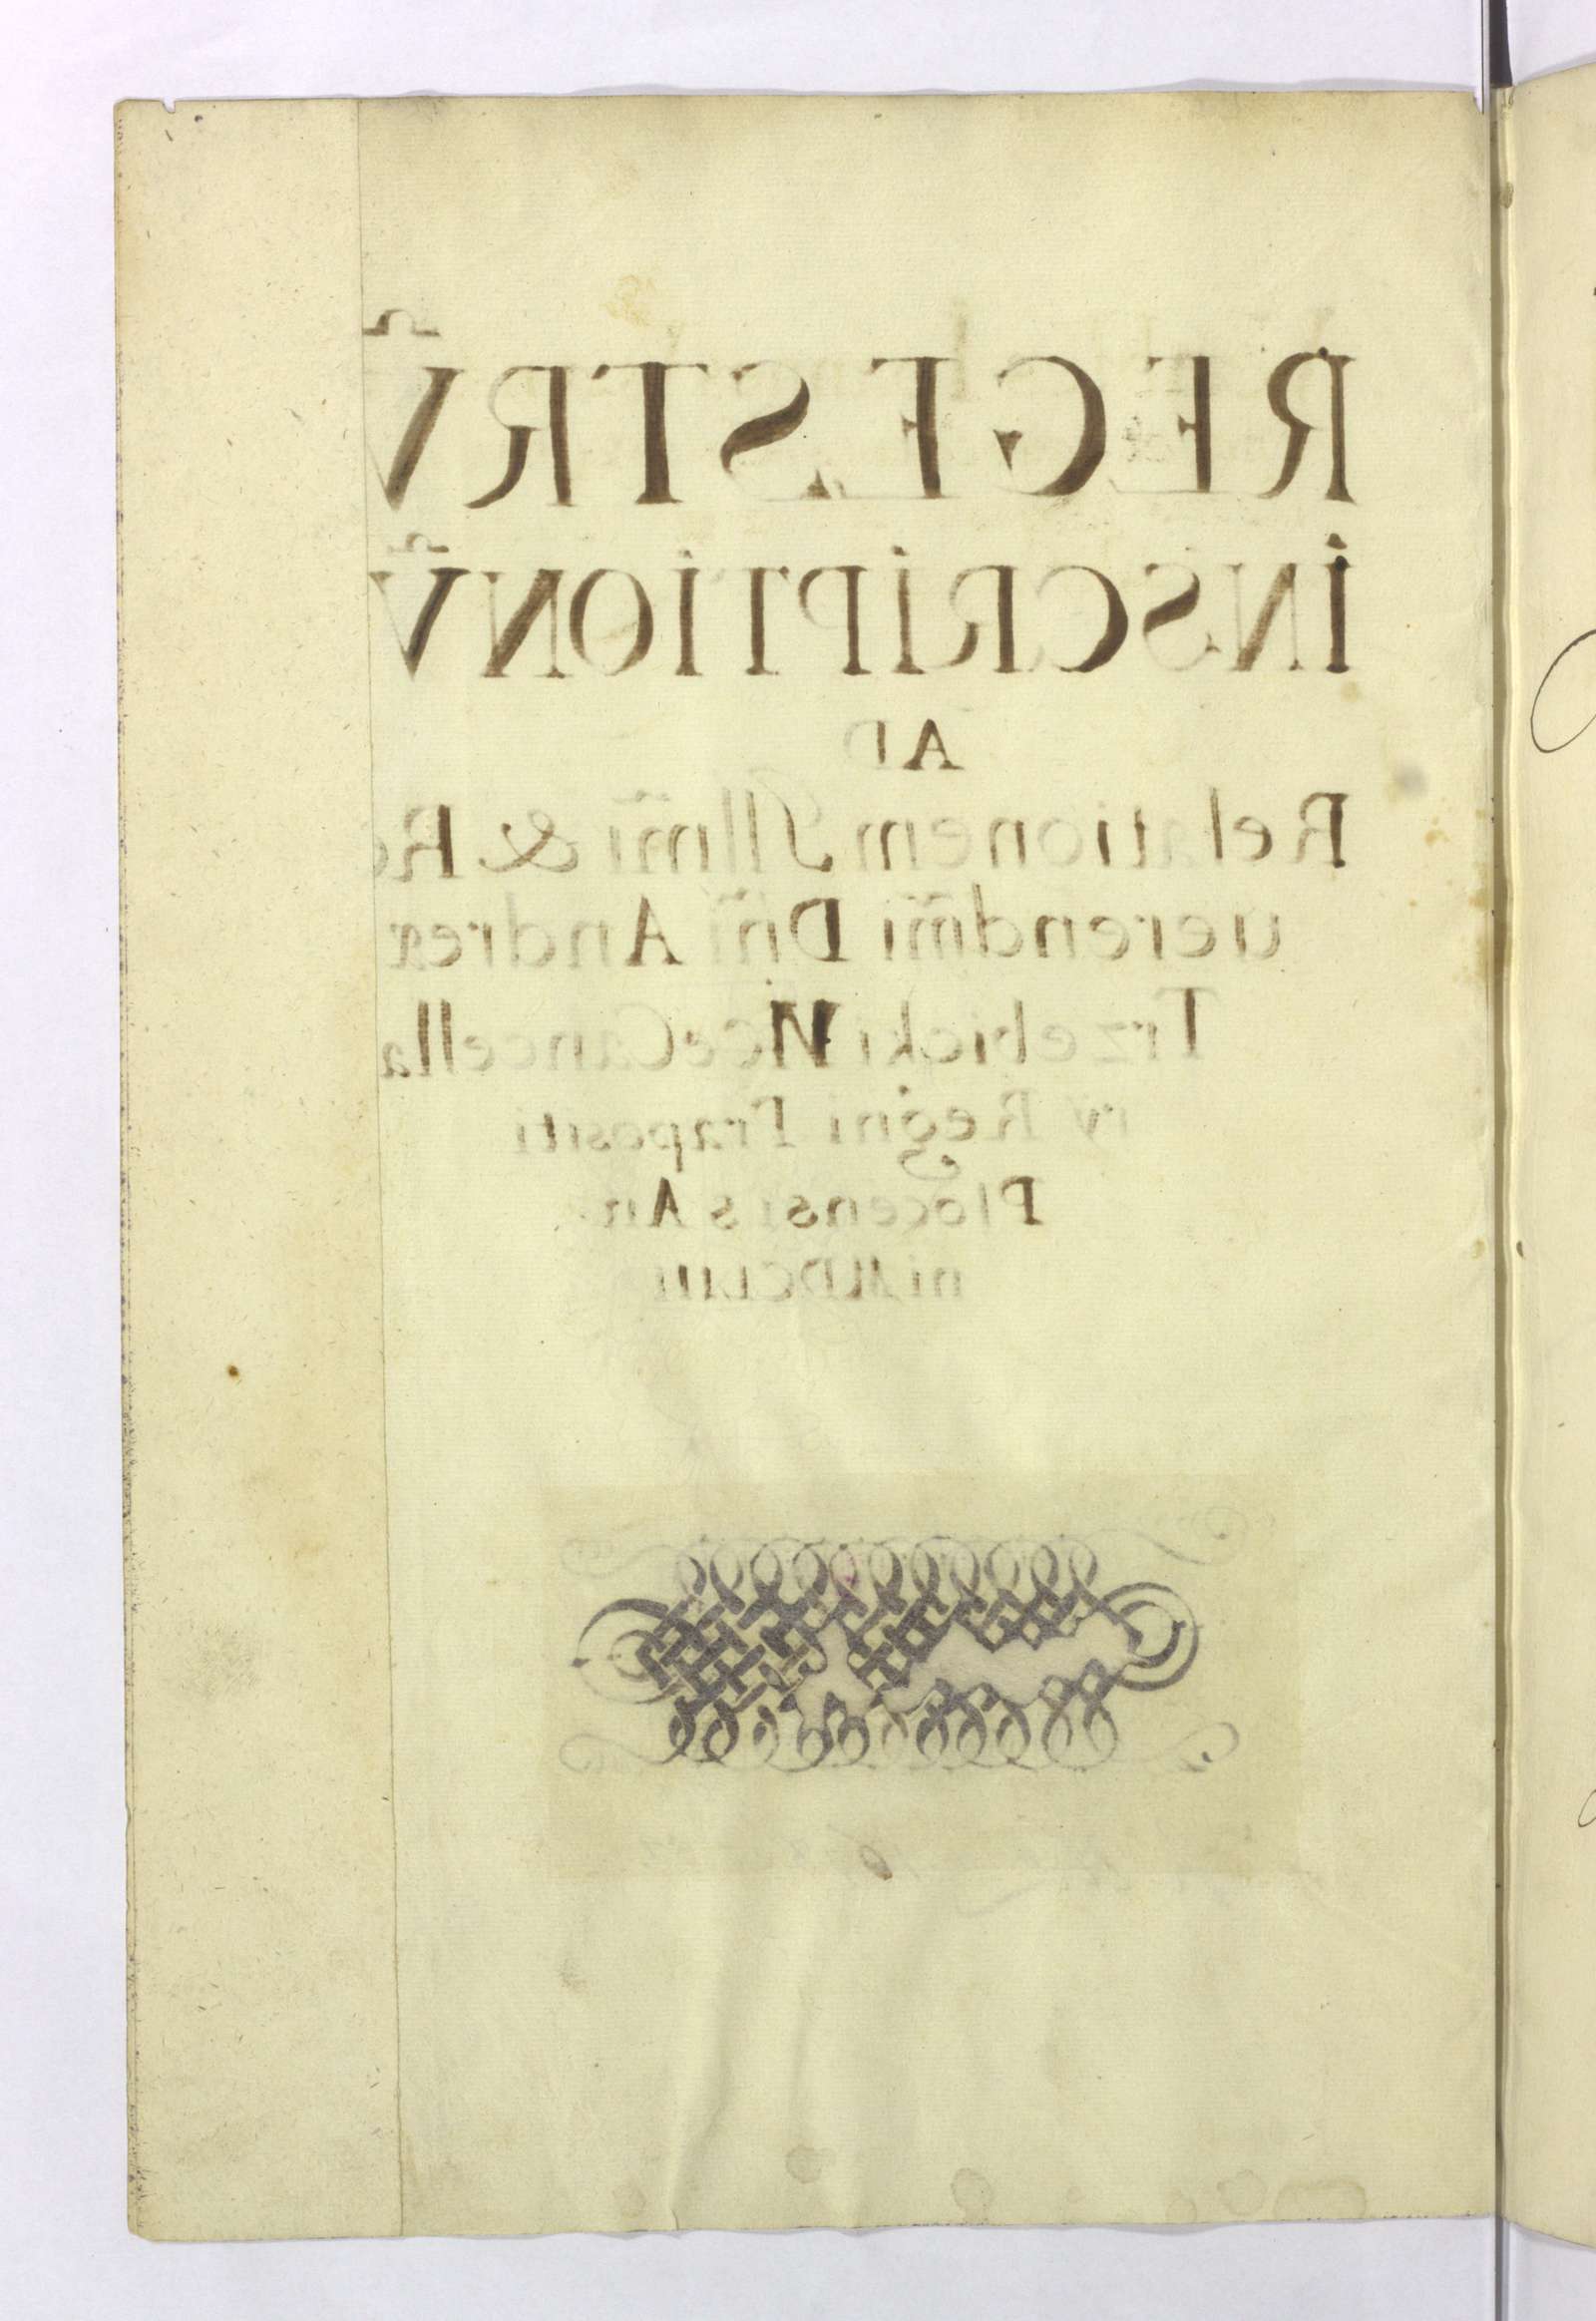 REGESTRṼ
INSCRIPTIONṼ
AD
Relationem Illm̃i & Re
uerendm̃i Dñi Andreæ
Trzebicki ViceCancella
ry Regni Præpositi
Plocensis An
ni MDCLIII